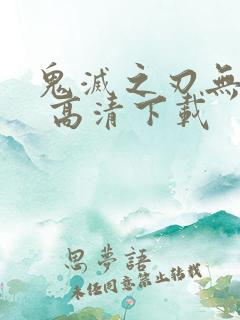 鬼滅之刃無
高清下載
思夢語
未經同意禁止轉載